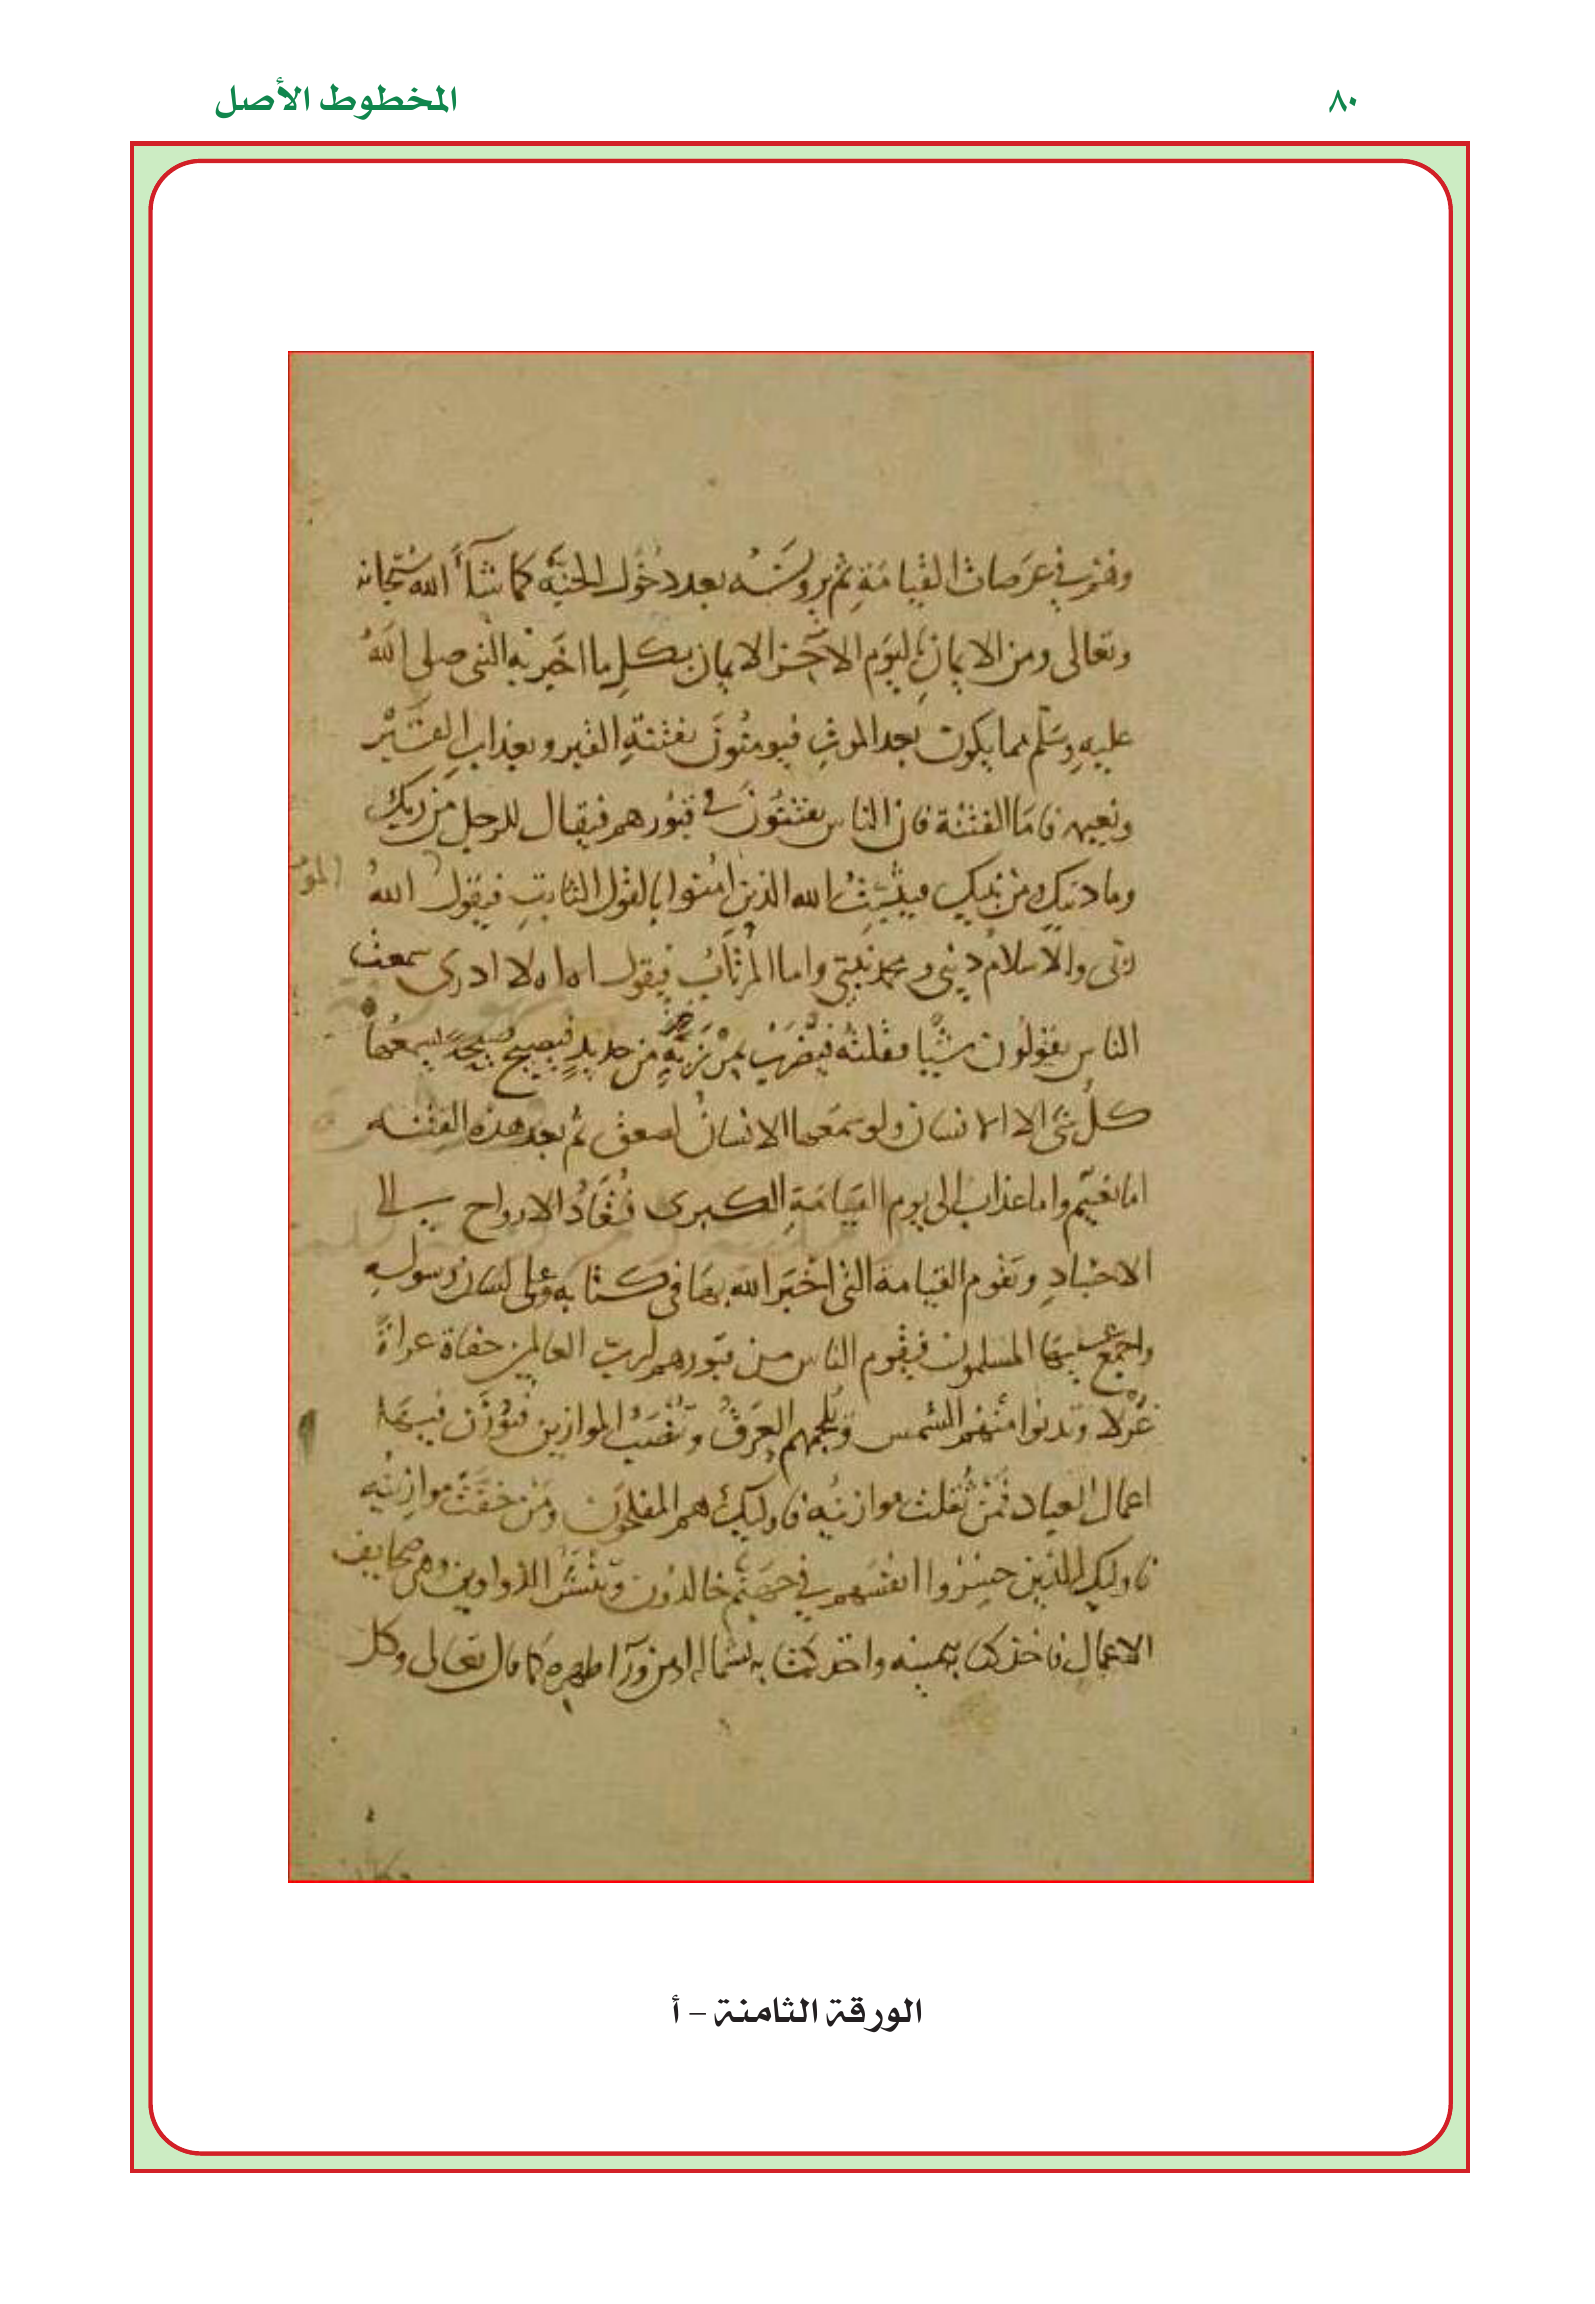 ٨٠
المخطوط الأصل
وهم في عرصات القيامة ثم يرونه بعد دخول الجنة كما شآء الله سبحانه
وتعالى ومن الايمان باليوم الآخر الايمان بكل ما اخبر به النبي صلى الله
عليه وسلم مما يكون بعد الموت فيومنون بفتنة القبر وبعذاب القبر
ونعيمه فاما الفتنة فان الناس يفتنون في قبورهم فيقال للرجل من ربك
وما دينك ومن نبيك فيثبت الله الذين امنوا بالقول الثابت فيقول الله
ربي والاسلام ديني ومحمد نبيي واما المرتاب فيقول اه اه لا ادرى سمعت
الناس يقولون شيا فقلته فيضرب بمرزبة من حديد فيصيح صيحة يسمعها
كل شي الا الانسان ولو سمعها الانسان لصعق ثم بعد هذه الفتنه
اما نعيم واما عذاب الى يوم القيامة الكبرى فتعاد الارواح الى
الاجساد وتقوم القيامة التي اخبر الله بها في كتابه وعلى لسان رسوله
واجمع عليها المسلمون فيقوم الناس من قبورهم لرب العالمين حفاة عراة
غرلا وتدنوا منهم الشمس ويلجمهم العرق وتنصب الموازين فتوزن فيها
اعمال العباد فمن ثقلت موازينه فاوليك هم المفلحون ومن خفت موازينه
فاوليك الذين خسروا انفسهم في جهنم خالدون وتنشر الدواوين وهي صحايف
الاعمال فاخذ كتابه بيمينه واخذ كتابه بشماله او من ورآ ظهره كما قال تعالى وكل
الورقة الثامنة – أ